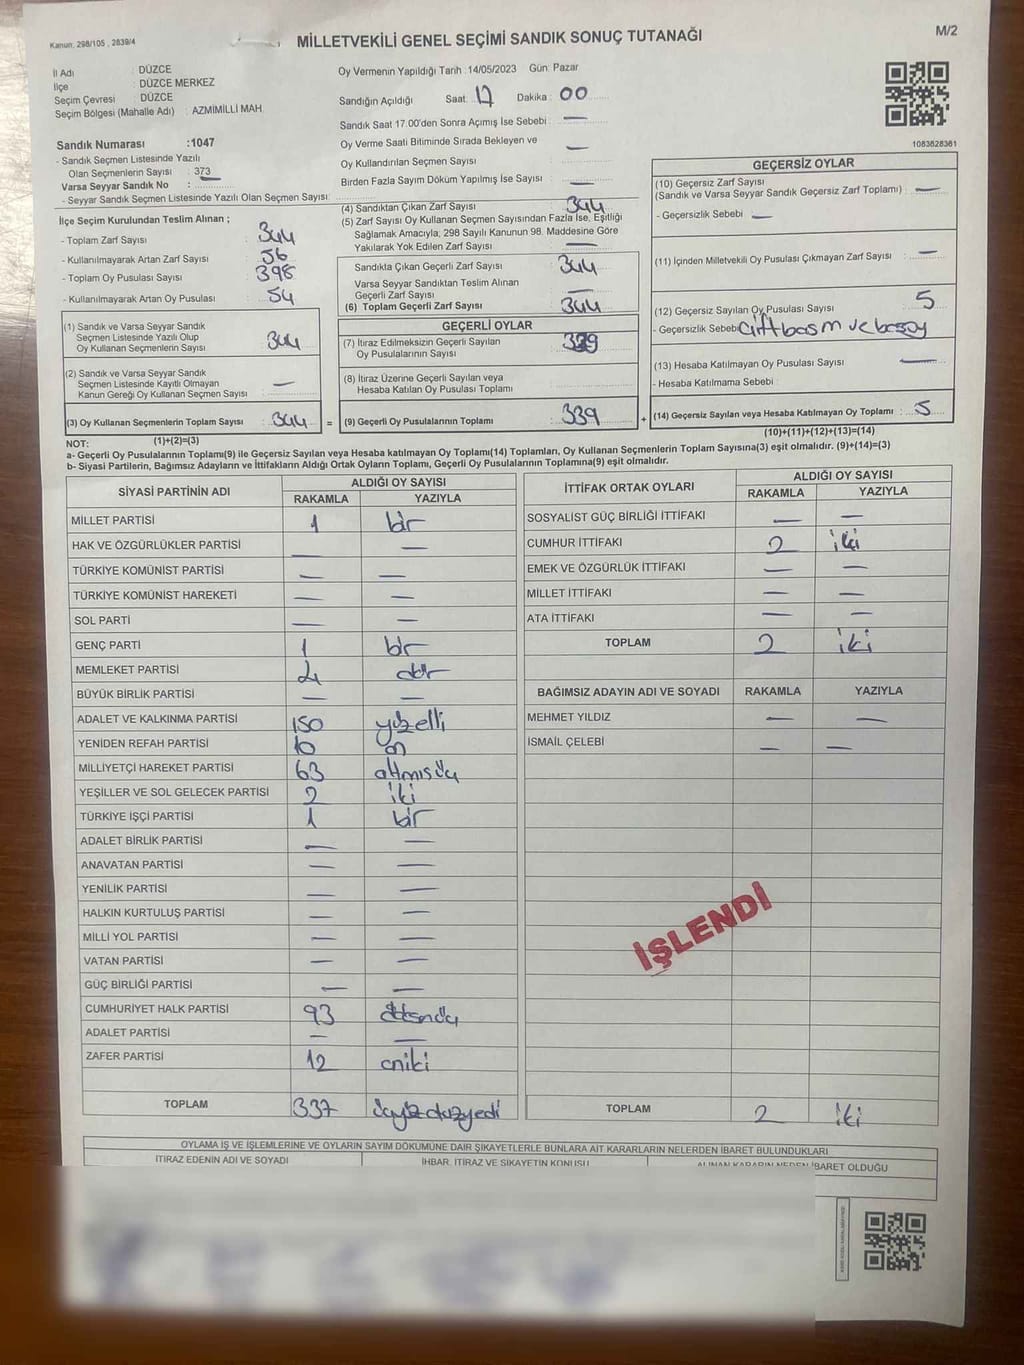 Kanun. 298/105 , 2839/4
MİLLETVEKİLİ GENEL SEÇİMİ SANDIK SONUÇ TUTANAĞI
M/2
İl Adı : DÜZCE
İlçe : DÜZCE MERKEZ
Seçim Çevresi : DÜZCE
Seçim Bölgesi (Mahalle Adı) : AZMİMİLLİ MAH.
Oy Vermenin Yapıldığı Tarih :14/05/2023 Gün: Pazar
Sandığın Açıldığı Saat: 17 Dakika : 00
Sandık Saat 17.00'den Sonra Açımış İse Sebebi : —
Oy Verme Saati Bitiminde Sırada Bekleyen ve
Oy Kullandırılan Seçmen Sayısı : —
Birden Fazla Sayım Döküm Yapılmış İse Sayısı : —
1083628361
Sandık Numarası :1047
- Sandık Seçmen Listesinde Yazılı
Olan Seçmenlerin Sayısı : 373
Varsa Seyyar Sandık No :
- Seyyar Sandık Seçmen Listesinde Yazılı Olan Seçmen Sayısı:
İlçe Seçim Kurulundan Teslim Alınan ;
- Toplam Zarf Sayısı : 344
- Kullanılmayarak Artan Zarf Sayısı : 56
- Toplam Oy Pusulası Sayısı : 398
- Kullanılmayarak Artan Oy Pusulası : 54
(1) Sandık ve Varsa Seyyar Sandık
Seçmen Listesinde Yazılı Olup
Oy Kullanan Seçmenlerin Sayısı : 344
(2) Sandık ve Varsa Seyyar Sandık
Seçmen Listesinde Kayıtlı Olmayan
Kanun Gereği Oy Kullanan Seçmen Sayısı : —
(3) Oy Kullanan Seçmenlerin Toplam Sayısı : 344 =
(4) Sandıktan Çıkan Zarf Sayısı : 344
(5) Zarf Sayısı Oy Kullanan Seçmen Sayısından Fazla İse, Eşitliği
Sağlamak Amacıyla, 298 Sayılı Kanunun 98. Maddesine Göre
Yakılarak Yok Edilen Zarf Sayısı : —
Sandıkta Çıkan Geçerli Zarf Sayısı : 344
Varsa Seyyar Sandıktan Teslim Alınan
Geçerli Zarf Sayısı : —
(6) Toplam Geçerli Zarf Sayısı : 344
GEÇERLİ OYLAR
(7) İtiraz Edilmeksizin Geçerli Sayılan
Oy Pusulalarının Sayısı : 339
(8) İtiraz Üzerine Geçerli Sayılan veya
Hesaba Katılan Oy Pusulası Toplamı :
(9) Geçerli Oy Pusulalarının Toplamı : 339 +
GEÇERSİZ OYLAR
(10) Geçersiz Zarf Sayısı
(Sandık ve Varsa Seyyar Sandık Geçersiz Zarf Toplamı) : —
- Geçersizlik Sebebi : —
(11) İçinden Milletvekili Oy Pusulası Çıkmayan Zarf Sayısı : —
(12) Geçersiz Sayılan Oy Pusulası Sayısı : 5
- Geçersizlik Sebebi :
(13) Hesaba Katılmayan Oy Pusulası Sayısı : —
- Hesaba Katılmama Sebebi :
(14) Geçersiz Sayılan veya Hesaba Katılmayan Oy Toplamı : 5
NOT: (1)+(2)=(3) (10)+(11)+(12)+(13)=(14)
a- Geçerli Oy Pusulalarının Toplamı(9) ile Geçersiz Sayılan veya Hesaba katılmayan Oy Toplamı(14) Toplamları, Oy Kullanan Seçmenlerin Toplam Sayısına(3) eşit olmalıdır. (9)+(14)=(3)
b- Siyasi Partilerin, Bağımsız Adayların ve İttifakların Aldığı Ortak Oyların Toplamı, Geçerli Oy Pusulalarının Toplamına(9) eşit olmalıdır.
SİYASİ PARTİNİN ADI ALDIĞI OY SAYISI
RAKAMLA YAZIYLA
MİLLET PARTİSİ 1 bir
HAK VE ÖZGÜRLÜKLER PARTİSİ — —
TÜRKİYE KOMÜNİST PARTİSİ — —
TÜRKİYE KOMÜNİST HAREKETİ — —
SOL PARTİ — —
GENÇ PARTİ 1 bir
MEMLEKET PARTİSİ 4 dör
BÜYÜK BİRLİK PARTİSİ — —
ADALET VE KALKINMA PARTİSİ 150 yüzelli
YENİDEN REFAH PARTİSİ 10 on
MİLLİYETÇİ HAREKET PARTİSİ 63 altmışüç
YEŞİLLER VE SOL GELECEK PARTİSİ 2 iki
TÜRKİYE İŞÇİ PARTİSİ 1 bir
ADALET BİRLİK PARTİSİ — —
ANAVATAN PARTİSİ — —
YENİLİK PARTİSİ — —
HALKIN KURTULUŞ PARTİSİ — —
MİLLİ YOL PARTİSİ — —
VATAN PARTİSİ — —
GÜÇ BİRLİĞİ PARTİSİ — —
CUMHURİYET HALK PARTİSİ 93
ADALET PARTİSİ — —
ZAFER PARTİSİ 12 oniki
TOPLAM 337 üçyüzotuzyedi
İTTİFAK ORTAK OYLARI ALDIĞI OY SAYISI
RAKAMLA YAZIYLA
SOSYALİST GÜÇ BİRLİĞİ İTTİFAKI — —
CUMHUR İTTİFAKI 2 iki
EMEK VE ÖZGÜRLÜK İTTİFAKI — —
MİLLET İTTİFAKI — —
ATA İTTİFAKI — —
TOPLAM 2 iki
BAĞIMSIZ ADAYIN ADI VE SOYADI RAKAMLA YAZIYLA
MEHMET YILDIZ — —
İSMAİL ÇELEBİ — —
İŞLENDİ
TOPLAM 2 iki
OYLAMA İŞ VE İŞLEMLERİNE VE OYLARIN SAYIM DÖKÜMÜNE DAİR ŞİKAYETLERLE BUNLARA AİT KARARLARIN NELERDEN İBARET BULUNDUKLARI
İTİRAZ EDENİN ADI VE SOYADI İHBAR, İTİRAZ VE ŞİKAYETİN KONUSU ALINAN KARARIN NEDEN İBARET OLDUĞU